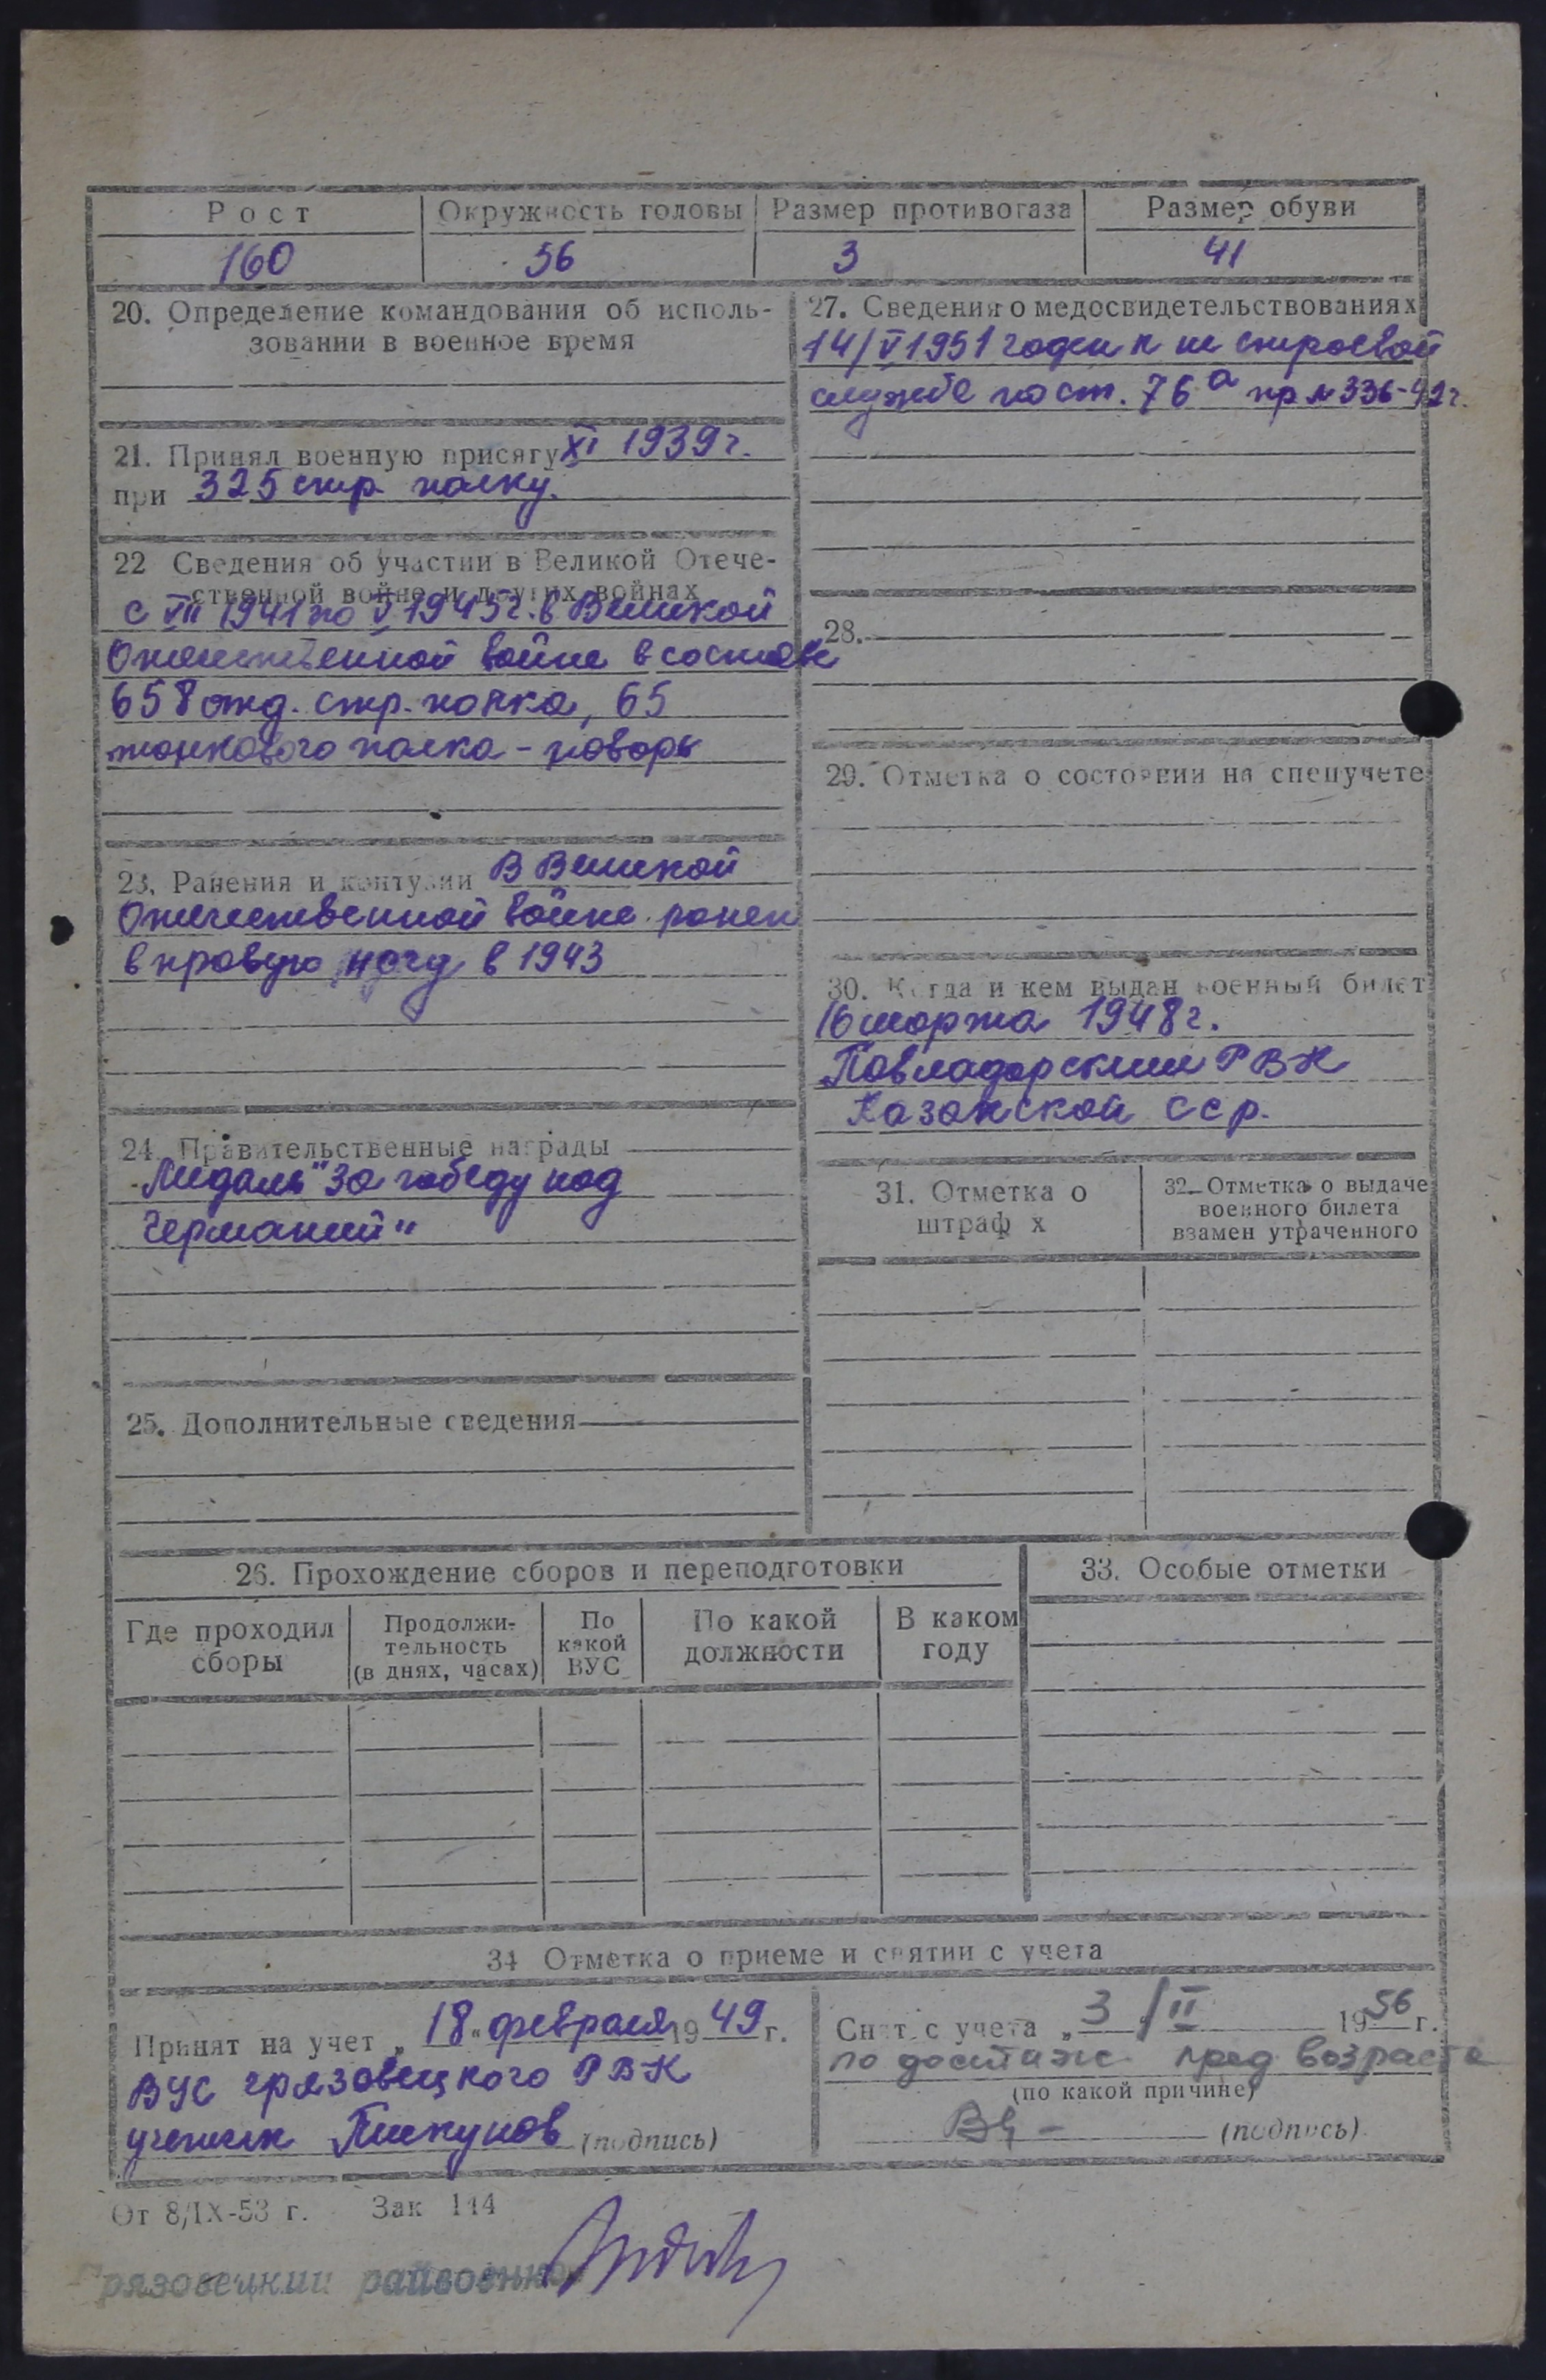 Рост Окружность головы Размер противогаза Размер обуви
160 56 3 41
20. Определение командования об исполь-
зовании в военное время
21. Принял военную присягу XI 1939 г.
при 325 стр. полку.
22 Сведения об участии в Великой Отече-
ственной войне и других войнах
с VII 1941 по V 1945 г. в Великой
Отечественной войне в составе
658 отд. стр. полка, 65
танкового полка - повар
23. Ранения и контузии В Великой
Отечественной войне ранен
в правую ногу в 1943
24. Правительственные награды
Медаль "За победу над
Германией"
25. Дополнительные сведения
27. Сведения о медосвидетельствованиях
14/V 1951 годен к не строевой
службе по ст. 76а пр № 336-42 г.
28.
29. Отметка о состоянии на спецучете
30. Когда и кем выдан военный билет
16 марта 1948 г.
Павладарским РВК
Казахской ССР.
31. Отметка о
штраф х
32. Отметка о выдаче
военного билета
взамен утраченного
26. Прохождение сборов и переподготовки
Где проходил
сборы
Продолжи-
тельность
(в днях, часах)
По
какой
ВУС
По какой
должности
В каком
году
33. Особые отметки
34 Отметка о приеме и снятии с учета
Принят на учет „18" февраля 1949 г.
ВУС Грязовецкого РВК
Пискунов (подпись)
Снят с учета „3/II 1956 г.
по достиж. пред возраста
(по какой причине)
(подпись)
От 8/IX-53 г. Зак 144
Грязовецкий райвоенком